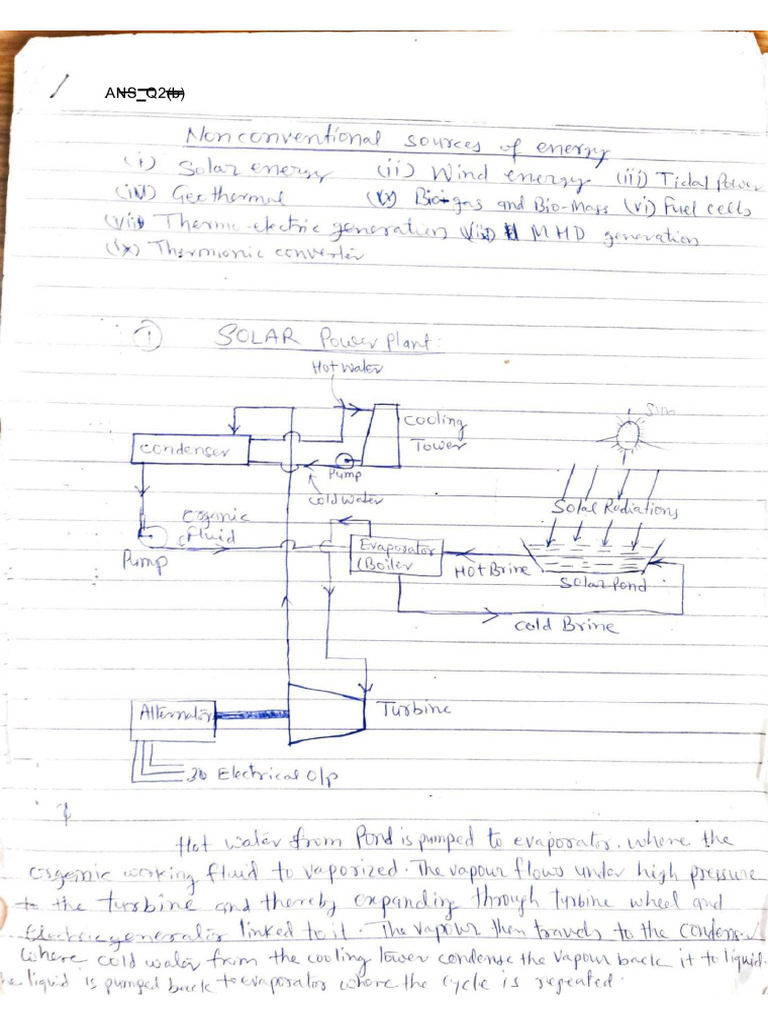 1
ANS_Q2(b)
Nonconventional sources of energy
(i) Solar energy (ii) Wind energy (iii) Tidal Power
(iv) Geothermal (v) Bio-gas and Bio-Mass (vi) Fuel cells
(vii) Thermo-electric generation (viii) MHD generation
(ix) Thermionic converter
① SOLAR Power Plant:
Hot water
Sun
Cooling
Tower
Condenser
Pump
cold water
Solar Radiations
Organic
fluid
Pump
Evaporator
/Boiler
Hot Brine
Solar Pond
Cold Brine
Alternator
Turbine
3Φ Electrical O/p
Hot water from Pond is pumped to evaporator. where the
organic working fluid to vaporized. The vapour flows under high pressure
to the turbine and thereby expanding through turbine wheel and
Electric generator linked to it. The vapour then travels to the condenser
where cold water from the cooling tower condense the vapour back it to liquid.
The liquid is pumped back to evaporator where the cycle is repeated.